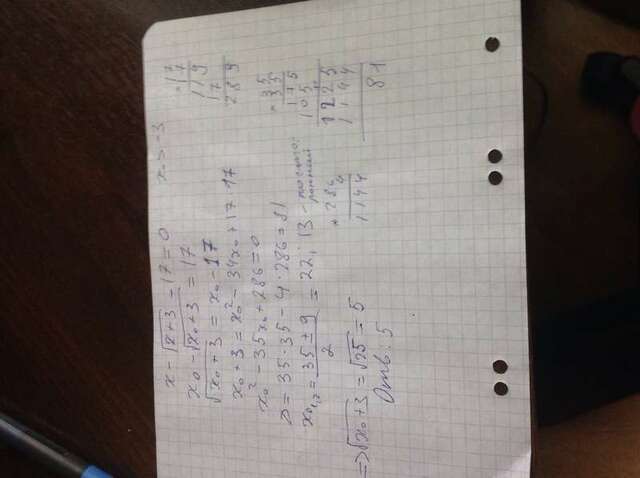 x - √x+3 - 17 = 0
x₀ ≥ -3
x₀ - √x₀+3 = 17
√x₀+3 = x₀ - 17
x₀ + 3 = x₀² - 34x₀ + 17·17
x₀² - 35x₀ + 286 = 0
D = 35·35 - 4·286 = 81
x₀₁,₂ = (35 ± 9)/2 = 22; 13 - посторонний
=> √x₀+3 = √25 = 5
Отв. 5
17
× 17
119
17
289
35
× 35
175
105
1225
1144
81
× 286
4
1144